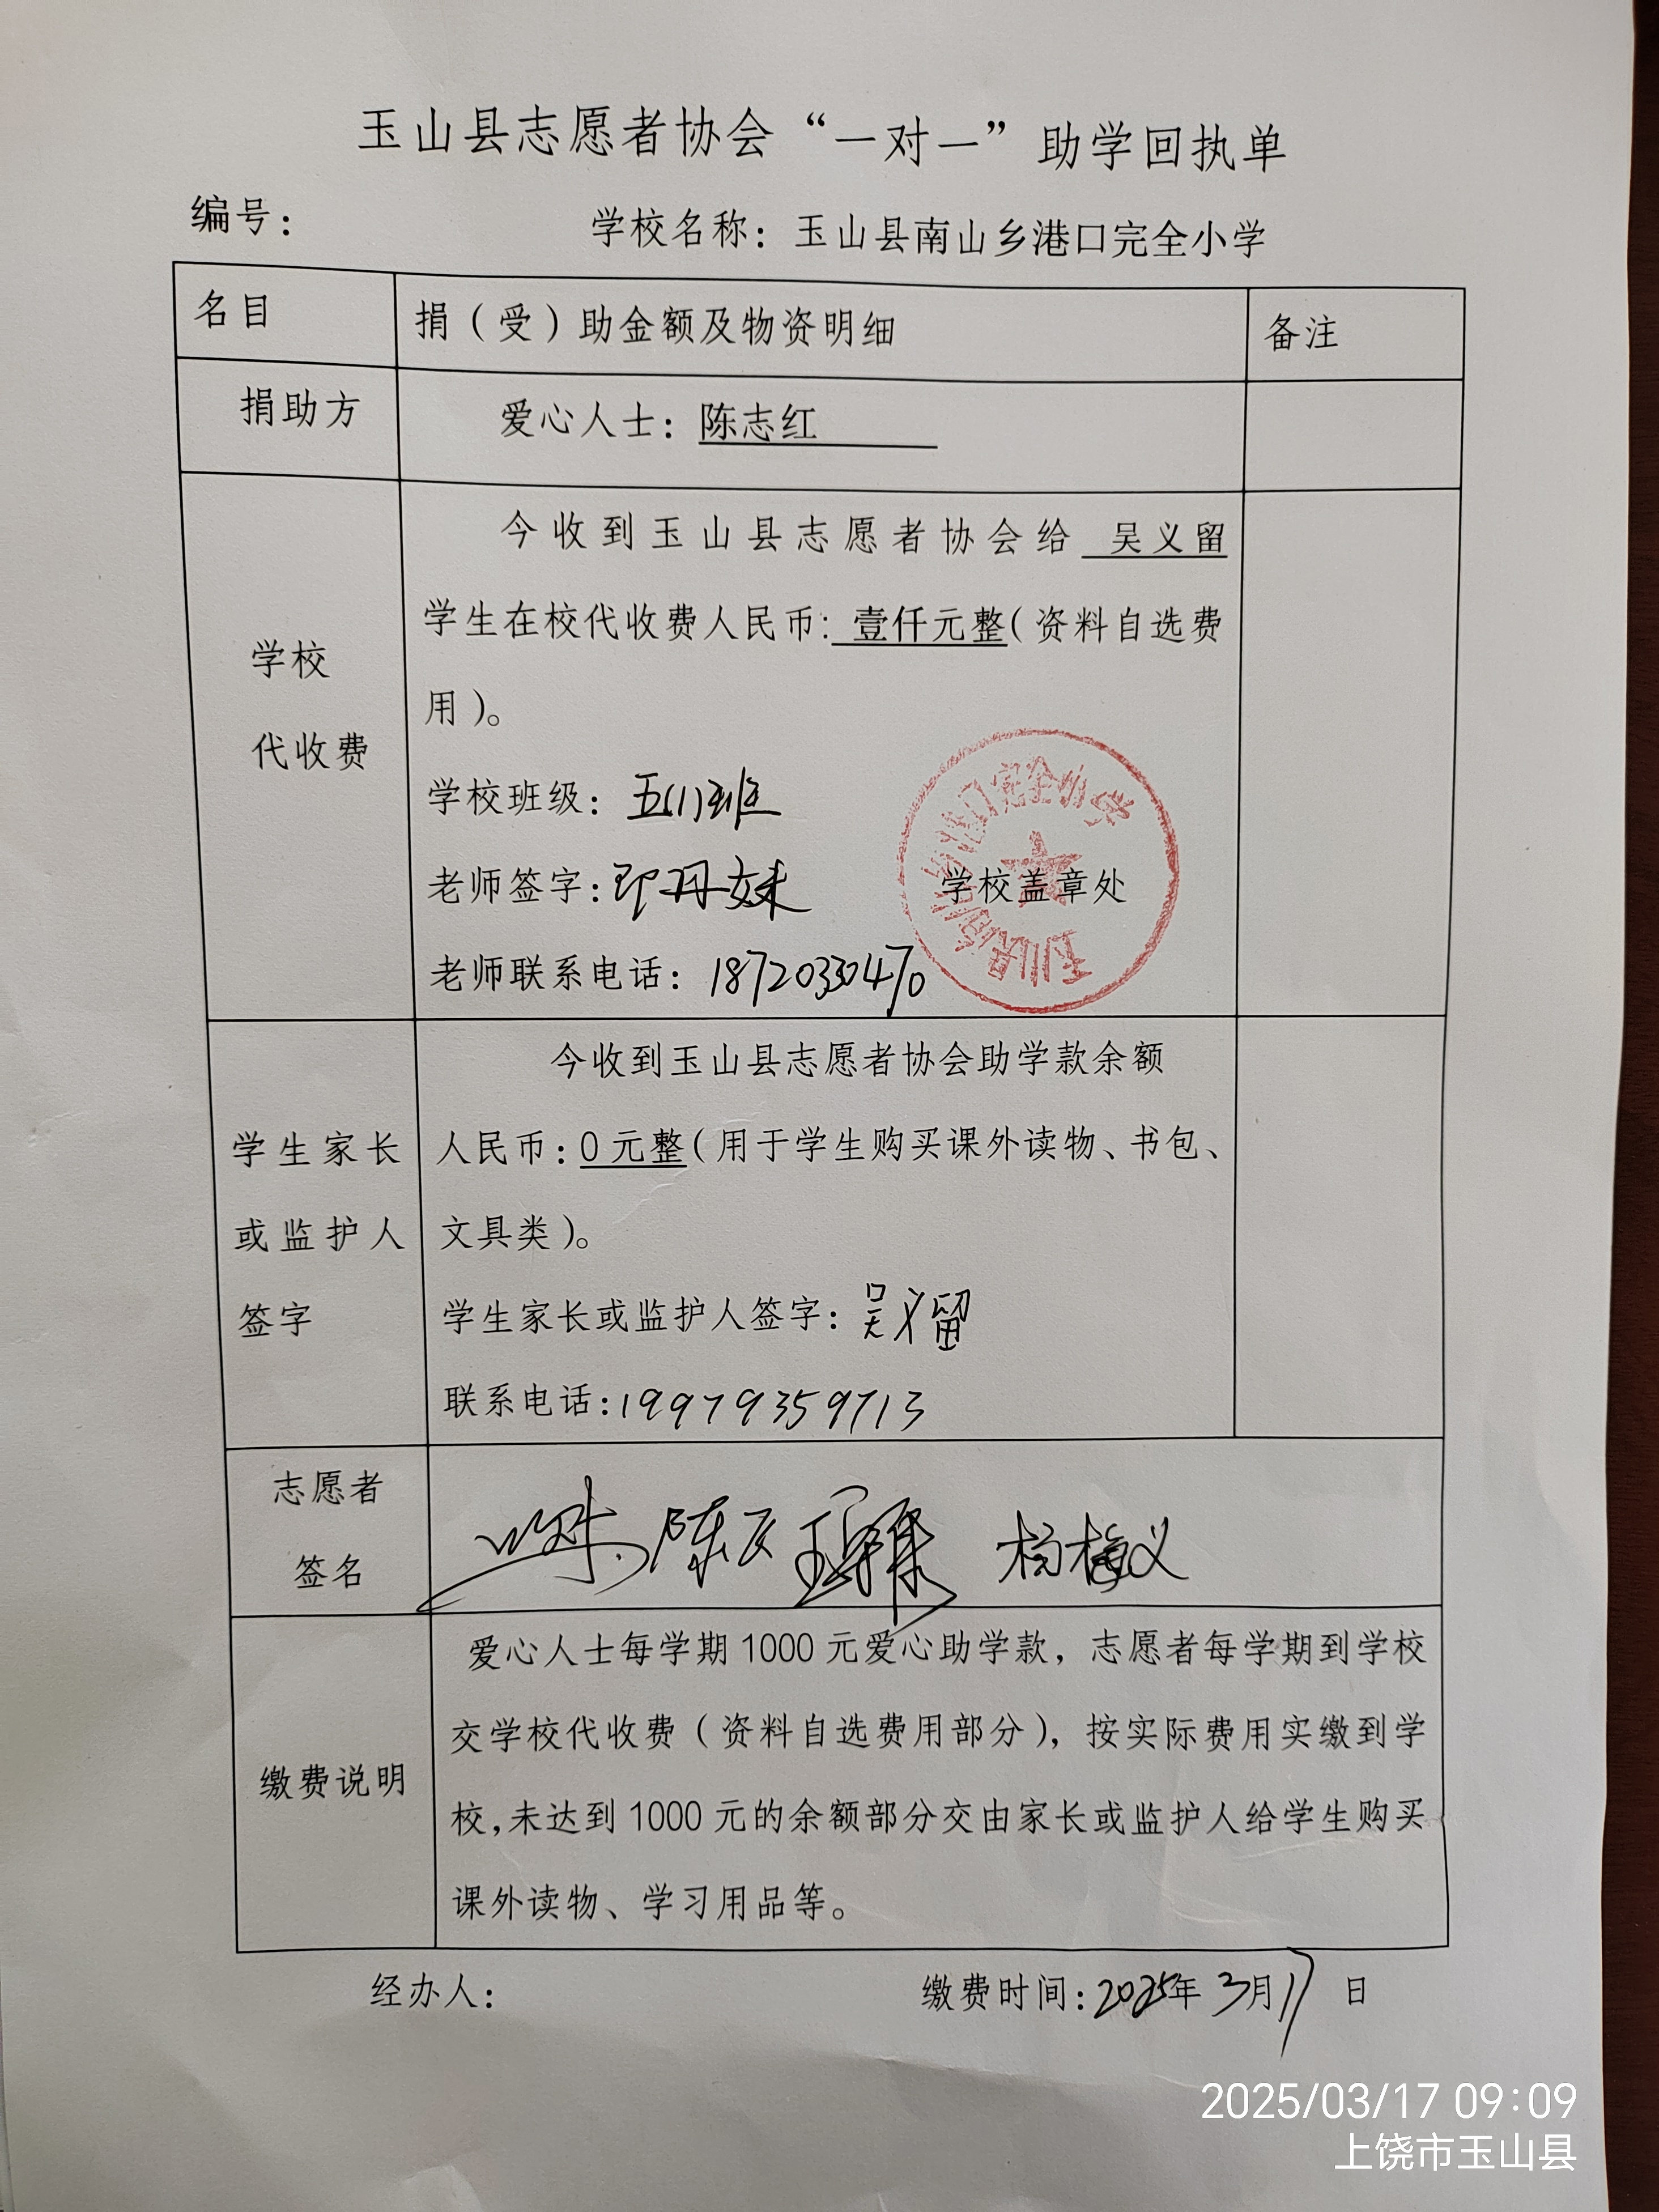 玉山县志愿者协会“一对一”助学回执单
编号： 学校名称：玉山县南山乡港口完全小学
名目 捐（受）助金额及物资明细 备注
捐助方 爱心人士：陈志红
学校
代收费
今收到玉山县志愿者协会给 吴义留
学生在校代收费人民币：壹仟元整（资料自选费
用）。
学校班级：五(1)班
老师签字： 丹妹
学校盖章处
老师联系电话：18720330470
学生家长
或监护人
签字
今收到玉山县志愿者协会助学款余额
人民币：0元整（用于学生购买课外读物、书包、
文具类）。
学生家长或监护人签字：吴义留
联系电话：19979359713
志愿者
签名
杨梅义
缴费说明
爱心人士每学期1000元爱心助学款，志愿者每学期到学校
交学校代收费（资料自选费用部分），按实际费用实缴到学
校，未达到1000元的余额部分交由家长或监护人给学生购买
课外读物、学习用品等。
经办人： 缴费时间：2025年3月17日
2025/03/17 09:09
上饶市玉山县